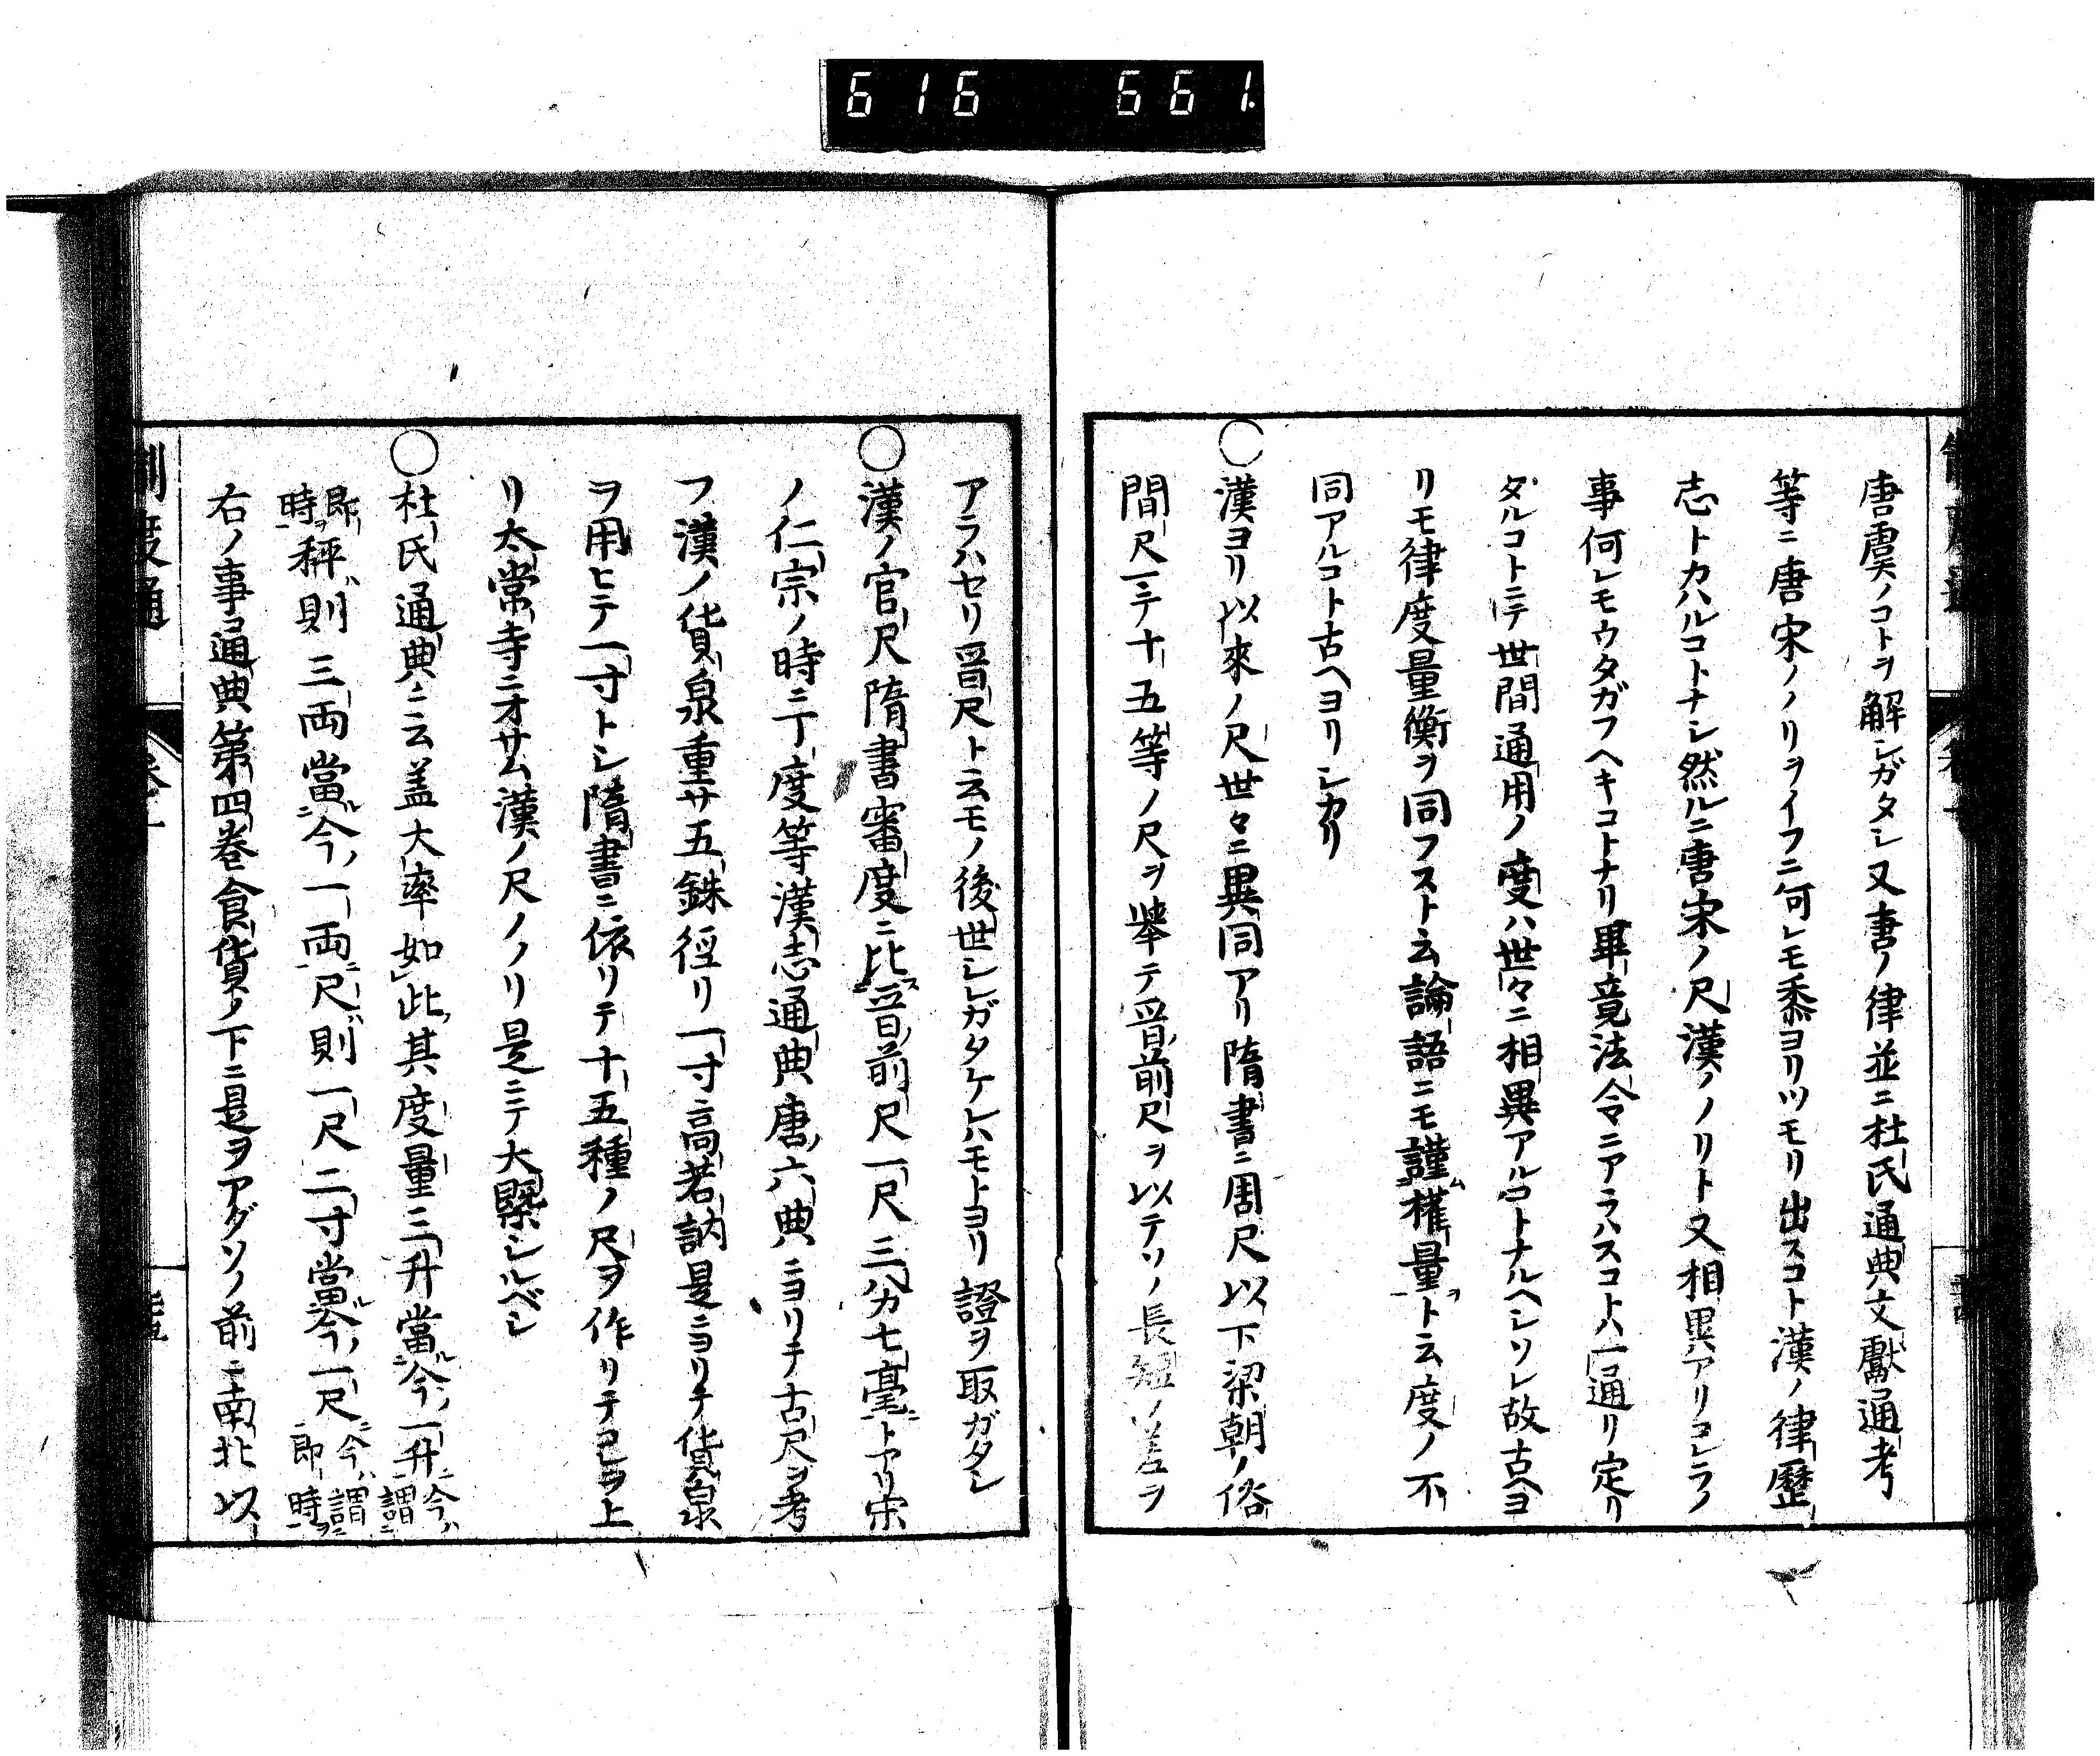 616 661
唐虞ノコトヲ解シガタシ又書ノ律並ニ杜氏通典文獻通考
等ニ唐宋ノノリヲイフニ何レモ黍ヨリツモリ出スコト漢ノ律歷
志トカハルコトナシ然ルニ唐宋ノ尺漢ノノリト又相異アリコレラノ
事何レモウタガフヘキコトナリ畢竟法令ニアラハスコトハ一通リ定リ
タルコトニテ世間通用ノ度ハ世々ニ相異アルコトナルヘシソレ故古ヘヨ
リモ律度量衡ヲ同フスト云論語ニモ謹ム權量ヲト云度ノ不
同アルコト古ヘヨリシカリ
○漢ヨリ以來ノ尺世々ニ異同アリ隋書ニ周尺以下梁朝ノ俗
間尺ニテ十五等ノ尺ヲ舉テ晉前尺ヲ以テソノ長短ノ差ヲ
アラハセリ晉尺ト云モノ後世シレガタケレハモトヨリ證ヲ取ガタシ
○漢ノ官尺隋書審度ニ比スニ晉前尺一尺三分七毫トアリ宋
ノ仁宗ノ時ニ丁度等漢志通典唐六典ニヨリテ古尺ヲ考
フ漢ノ貨泉重サ五銖徑リ一寸高若訥是ニヨリテ貨泉
ヲ用ヒテ一寸トシ隋書ニ依リテ十五種ノ尺ヲ作リテコレヲ上
リ太常寺ニオサム漢ノ尺ノノリ是ニテ大槩シルベシ
○杜氏通典ニ云盖大率如此其度量三升當ル今ノ一升ニ今ハ謂
即時ヲ秤ハ則三両當ル今ノ一両ニ尺ハ則一尺二寸當ル今ノ一尺ニ今ハ謂即時ヲ
右ノ事ヿ通典第四巻食貨ノ下ニ是ヲアグソノ前ニ南北以
制度通